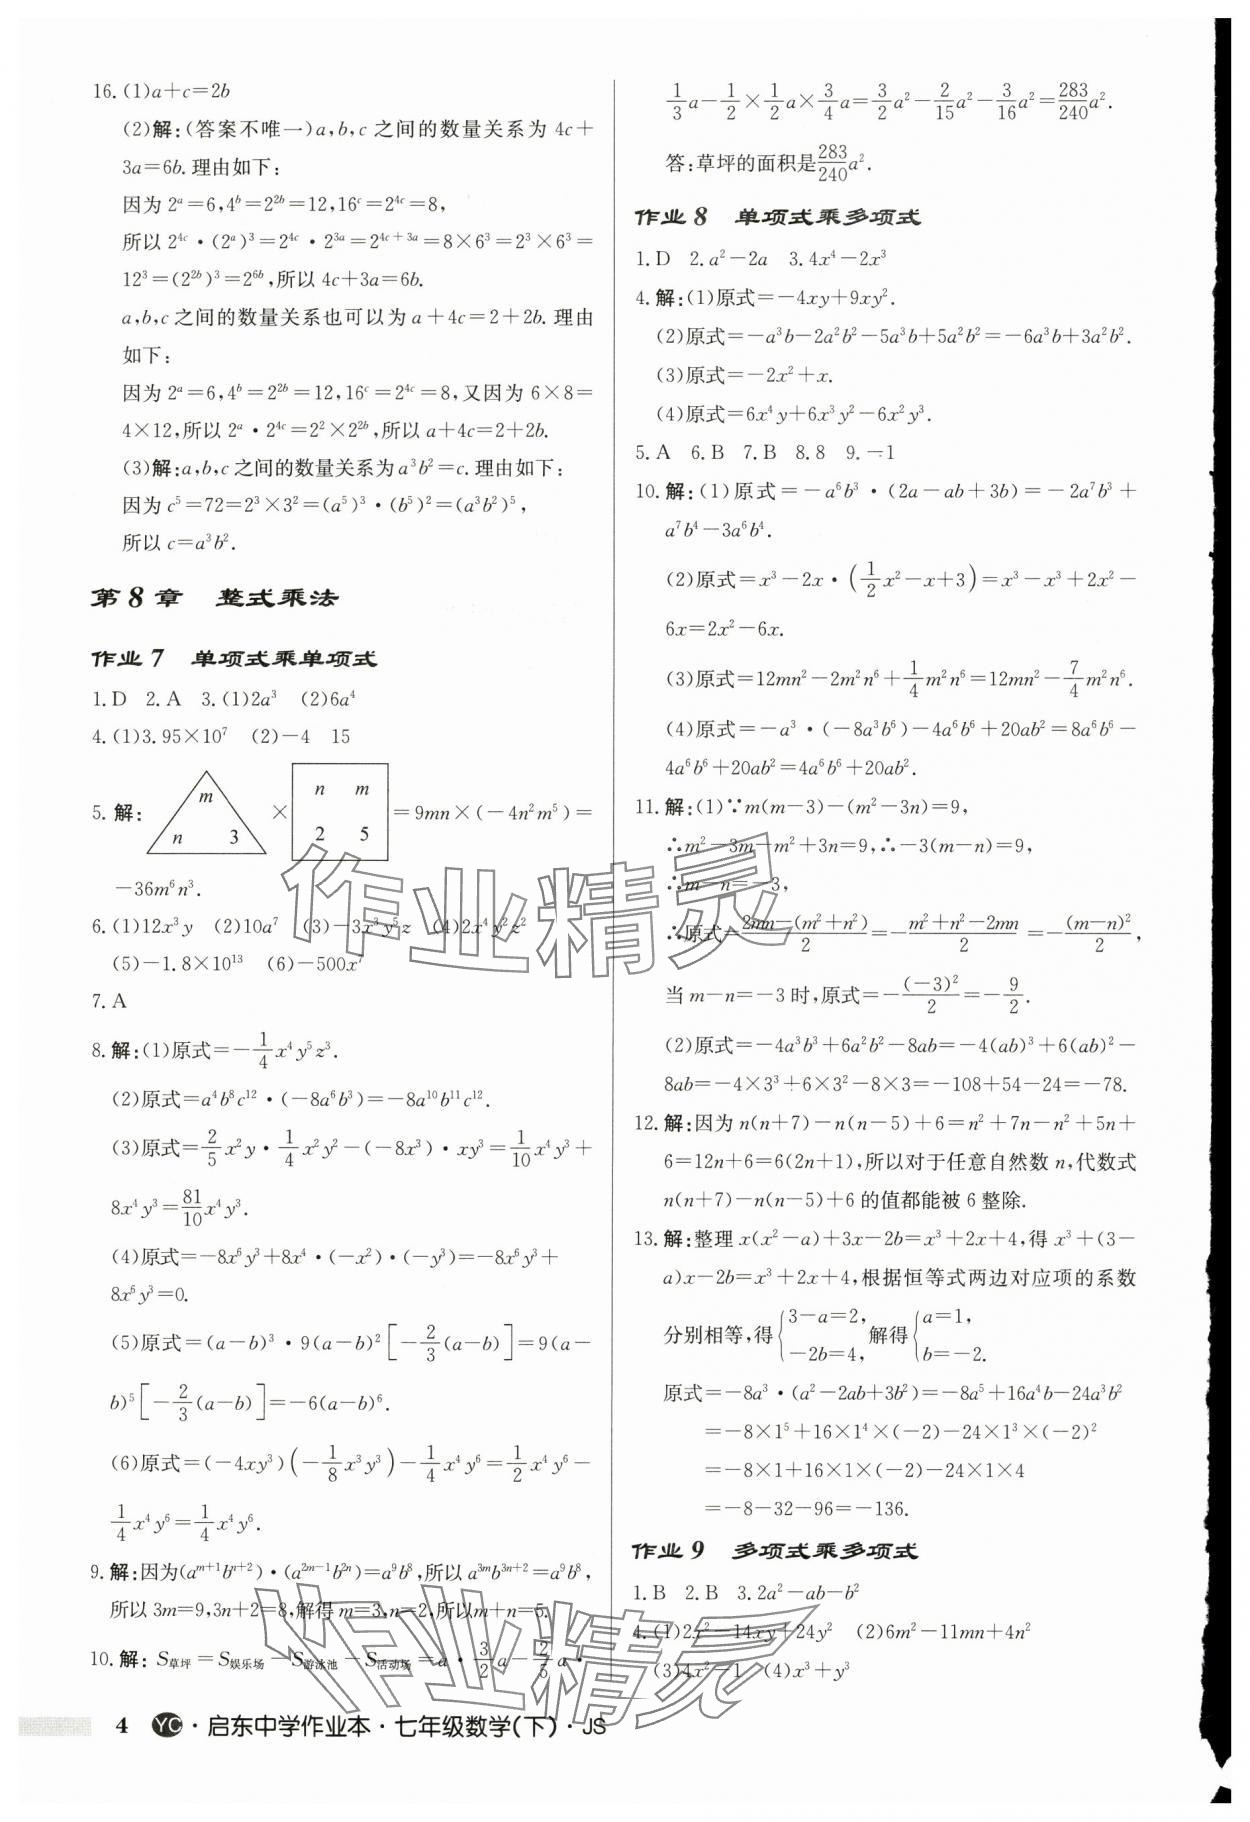 16.(1)a+c=2b
(2)解:(答案不唯一)a,b,c 之间的数量关系为 4c+
3a=6b.理由如下:
因为 2^a=6,4^b=2^{2b}=12,16^c=2^{4c}=8,
所以 2^{4c}·(2^a)^3=2^{4c}·2^{3a}=2^{4c+3a}=8×6^3=2^3×6^3=
12^3=(2^{2b})^3=2^{6b},所以 4c+3a=6b.
a,b,c 之间的数量关系也可以为 a+4c=2+2b.理由
如下:
因为 2^a=6,4^b=2^{2b}=12,16^c=2^{4c}=8,又因为 6×8=
4×12,所以 2^a·2^{4c}=2^2×2^{2b},所以 a+4c=2+2b.
(3)解:a,b,c 之间的数量关系为 a^3b^2=c.理由如下:
因为 c^5=72=2^3×3^2=(a^5)^3·(b^5)^2=(a^3b^2)^5,
所以 c=a^3b^2.
第 8 章 整式乘法
作业 7 单项式乘单项式
1.D 2.A 3.(1)2a^3 (2)6a^4
4.(1)3.95×10^7 (2)-4 15
5.解: m n 3 × n m 2 5 =9mn×(-4n^2m^5)=
-36m^6n^3.
6.(1)12x^3y (2)10a^7 (3)-3x^3y^5z (4)2x^4y^2z^2
(5)-1.8×10^{13} (6)-500x^7
7.A
8.解:(1)原式=-\frac{1}{4}x^4y^5z^3.
(2)原式=a^4b^8c^{12}·(-8a^6b^3)=-8a^{10}b^{11}c^{12}.
(3)原式=\frac{2}{5}x^2y·\frac{1}{4}x^2y^2-(-8x^3)·xy^3=\frac{1}{10}x^4y^3+
8x^4y^3=\frac{81}{10}x^4y^3.
(4)原式=-8x^6y^3+8x^4·(-x^2)·(-y^3)=-8x^6y^3+
8x^6y^3=0.
(5)原式=(a-b)^3·9(a-b)^2[-\frac{2}{3}(a-b)]=9(a-
b)^5[-\frac{2}{3}(a-b)]=-6(a-b)^6.
(6)原式=(-4xy^3)(-\frac{1}{8}x^3y^3)-\frac{1}{4}x^4y^6=\frac{1}{2}x^4y^6-
\frac{1}{4}x^4y^6=\frac{1}{4}x^4y^6.
9.解:因为(a^{m+1}b^{n+2})·(a^{2m-1}b^{2n})=a^9b^8,所以 a^{3m}b^{3n+2}=a^9b^8,
所以 3m=9,3n+2=8,解得 m=3,n=2,所以m+n=5.
10.解:S草坪=S娱乐场-S游泳池-S活动场=a·\frac{3}{2}a-\frac{2}{5}a·
\frac{1}{3}a-\frac{1}{2}×\frac{1}{2}a×\frac{3}{4}a=\frac{3}{2}a^2-\frac{2}{15}a^2-\frac{3}{16}a^2=\frac{283}{240}a^2.
答:草坪的面积是\frac{283}{240}a^2.
作业 8 单项式乘多项式
1.D 2.a^2-2a 3.4x^4-2x^3
4.解:(1)原式=-4xy+9xy^2.
(2)原式=-a^3b-2a^2b^2-5a^3b+5a^2b^2=-6a^3b+3a^2b^2.
(3)原式=-2x^2+x.
(4)原式=6x^4y+6x^3y^2-6x^2y^3.
5.A 6.B 7.B 8.8 9.-1
10.解:(1)原式=-a^6b^3·(2a-ab+3b)=-2a^7b^3+
a^7b^4-3a^6b^4.
(2)原式=x^3-2x·(\frac{1}{2}x^2-x+3)=x^3-x^3+2x^2-
6x=2x^2-6x.
(3)原式=12mn^2-2m^2n^6+\frac{1}{4}m^2n^6=12mn^2-\frac{7}{4}m^2n^6.
(4)原式=-a^3·(-8a^3b^6)-4a^6b^6+20ab^2=8a^6b^6-
4a^6b^6+20ab^2=4a^6b^6+20ab^2.
11.解:(1)∵m(m-3)-(m^2-3n)=9,
∴m^2-3m-m^2+3n=9,∴-3(m-n)=9,
∴m-n=-3,
∴原式=\frac{2mn-(m^2+n^2)}{2}=-\frac{m^2+n^2-2mn}{2}=-\frac{(m-n)^2}{2},
当 m-n=-3 时,原式=-\frac{(-3)^2}{2}=-\frac{9}{2}.
(2)原式=-4a^3b^3+6a^2b^2-8ab=-4(ab)^3+6(ab)^2-
8ab=-4×3^3+6×3^2-8×3=-108+54-24=-78.
12.解:因为 n(n+7)-n(n-5)+6=n^2+7n-n^2+5n+
6=12n+6=6(2n+1),所以对于任意自然数 n,代数式
n(n+7)-n(n-5)+6 的值都能被 6 整除.
13.解:整理 x(x^2-a)+3x-2b=x^3+2x+4,得 x^3+(3-
a)x-2b=x^3+2x+4,根据恒等式两边对应项的系数
分别相等,得{3-a=2, -2b=4, 解得{a=1, b=-2.
原式=-8a^3·(a^2-2ab+3b^2)=-8a^5+16a^4b-24a^3b^2
=-8×1^5+16×1^4×(-2)-24×1^3×(-2)^2
=-8×1+16×1×(-2)-24×1×4
=-8-32-96=-136.
作业 9 多项式乘多项式
1.B 2.B 3.2a^2-ab-b^2
4.(1)2x^2-14xy+24y^2 (2)6m^2-11mn+4n^2
(3)4x^2-1 (4)x^3+y^3
4 YC·启东中学作业本·七年级数学(下)·JS
作业精灵
作业精灵